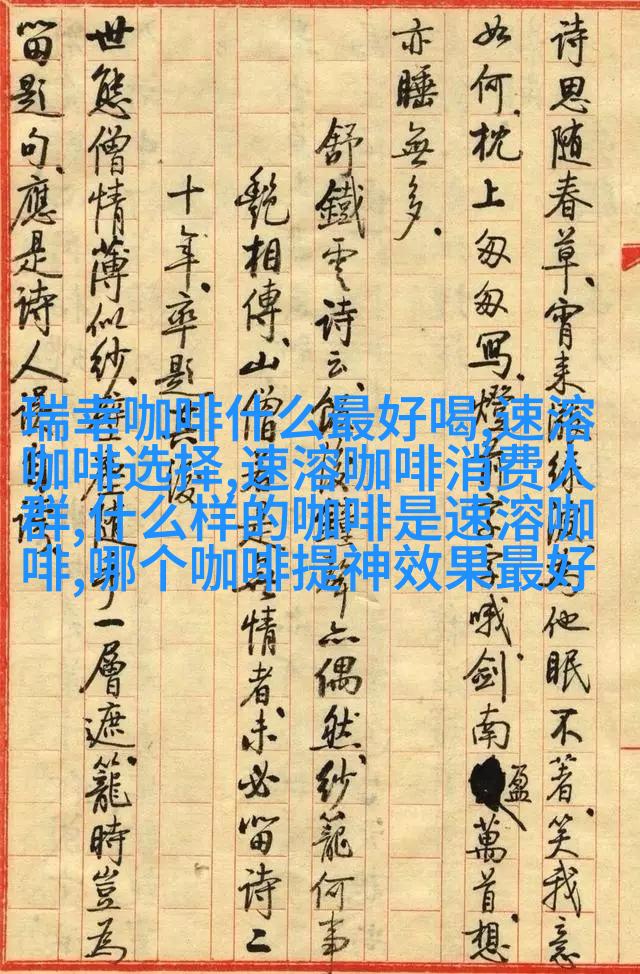 诗思随春草、宵来绿为他眠不著、笑我意
如何、枕上匆匆写、燈前字字哦、劍南盈萬首、想
亦睡無多、
舒鐵雲诗云、亦偶然、纱籠何事
艷相傳、山僧是情者、未必留诗二
十年、率題其後
世態僧情薄似纱、一層遮、籠時豈為
留題句、應是诗人
瑞幸咖啡什么最好喝,速溶
咖啡选择,速溶咖啡消费人
群,什么样的咖啡是速溶咖
啡,哪个咖啡提神效果最好